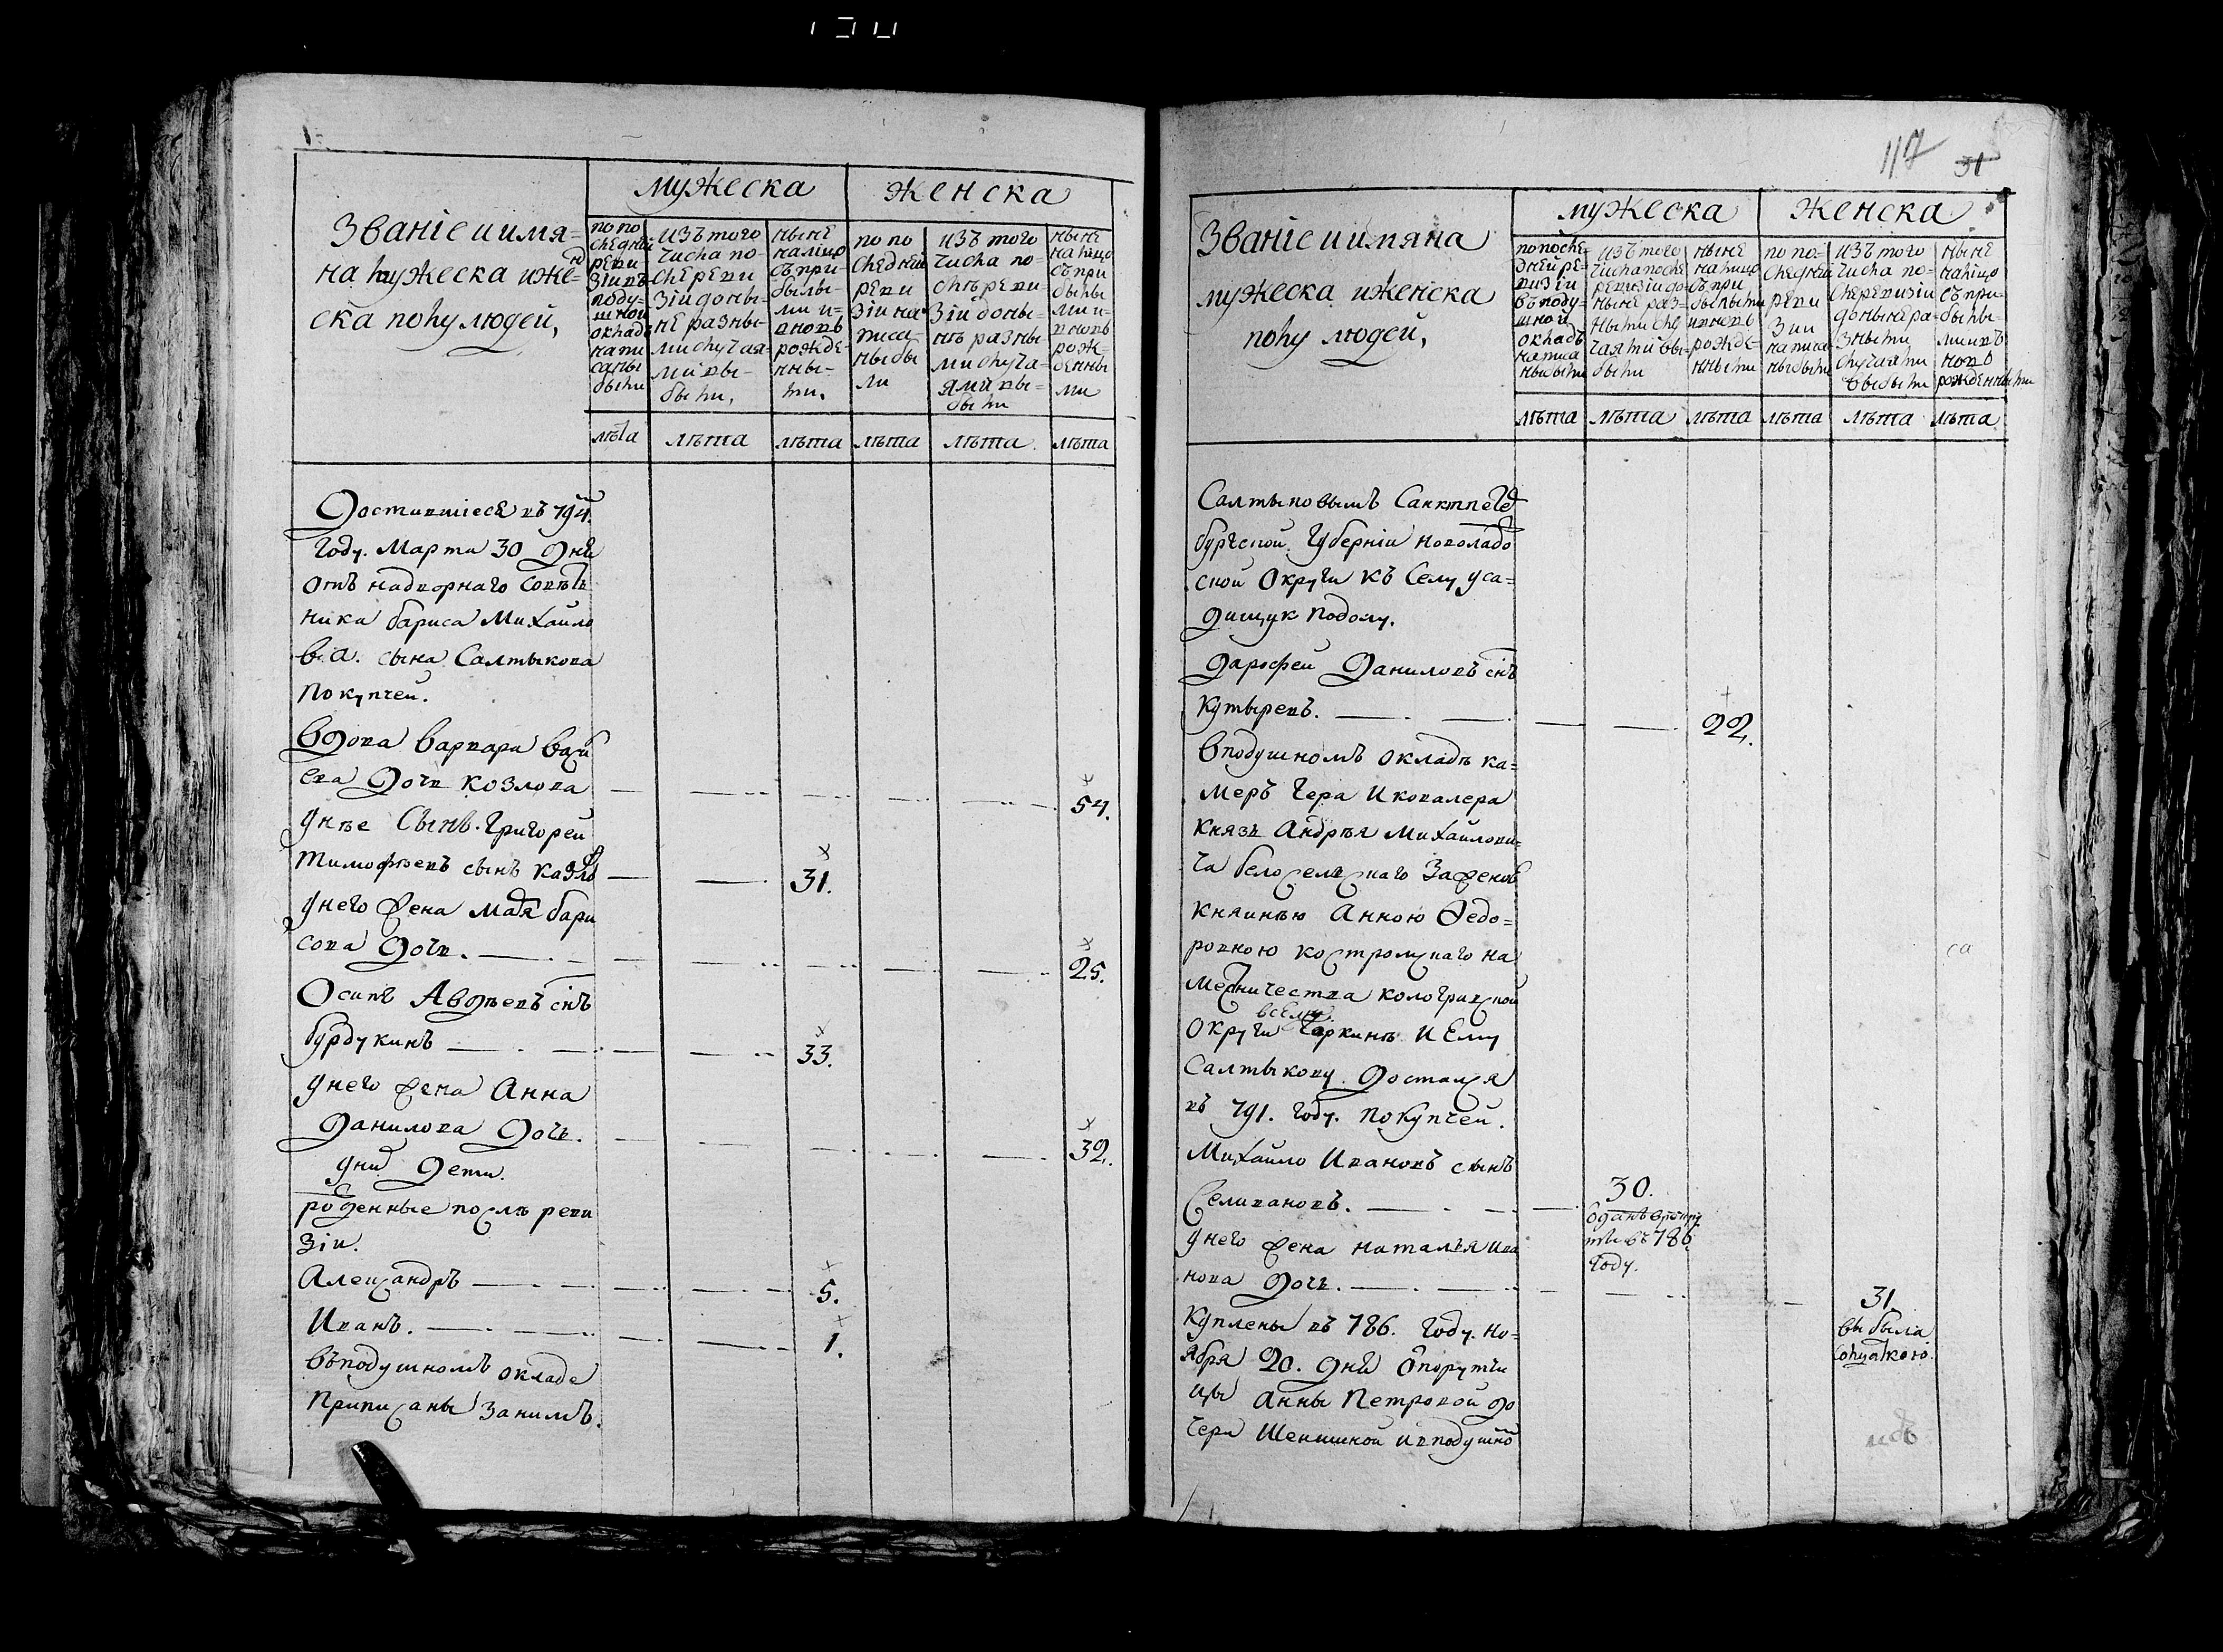 мужеска женска
Званіе и имя=
на мужеска и жен=
ска полу людей,
по по
следней
реви
зіи въ
поду=
шной
окладъ
напи
саны
были
изъ того
числа по=
сле реви
зіи доны=
не разны=
ми случая=
ми вы=
были,
ныне
на лицо
съ при
былы=
ми и=
вновь
рожде=
нны=
ми,
по по
следней
реви
зіи на
писа
ны бы
ли
изъ того
числа по=
слѣ реви=
зіи доны=
нѣ разны
ми случа=
ями вы=
были
ныне
на лицо
съ при
былы
ми и=
вновь
рож=
денны
ми
лѣта лѣта лѣта лѣта лѣта лѣта
Доставшіеся въ 794м
году. Марта 30 дня
отъ надворнаго Совѣт
ника бариса Михайло
в.а. сына Салтыкова
покупчей.
Вдова варвара васи
ева дочь козлова 54.
у нее Сынъ. Григорей
Тимофѣевъ сынъ казло 31.
у него жена Марья бари
сова дочь. 25.
Осипъ Авдѣевъ снъ
бурдукинъ 33.
у него жена Анна
Данилова дочь. 32.
у них дети.
рожденные послѣ реви
зіи.
Александръ 5.
Иванъ. 1.
въ подушномъ окладе
приписаны за нимъ.
117 31
мужеска женска
Званіе и имяна
мужеска и женска
полу людей,
по после=
дней ре=
визіи
въ поду=
шной
окладъ
написа
ны были
изъ того
числа после
ревизіи до
ныне раз=
ными слу
чаями вы=
были
ныне
на лицо
съ при
былыми
и вновь
рожде=
нными
по по=
следней
реви
зии
написа
ны были
изъ того
числа по=
сле ревизіи
доныне ра=
зными
случаями
выбыли
ныне
на лицо
съ при=
былы=
ми и въ
новь
рожденными
лѣта лѣта лѣта лѣта лѣта лѣта
Салтыковымъ Санктпетер
бургской. Губерніи Новоладо
ской Округи къ Селу уса=
дищу к Подолу.
дарофей Даниловъ снъ
Кутыревъ. 22.
В подушномъ окладѣ ка=
мергера И ковалера
Князь Андрѣя Михайлови=
ча белоселскаго За женою
Княинѣю Анною Федо=
ровною костромскаго на
местничества кологривской
вселце.
Округи Чаркинѣ И Ему
Салтыкову достался
въ 791. году. покупчей.
Михайло Ивановъ сынъ
Селивановъ. 30.
Году.
у него жена наталья Ива
нова дочь. 31
выбыла
солдаткою.
Куплены въ 786. году. но=
ября 20. дня отпорутчи
цы Анны Петровой до
чери Шеншиной и вподушно